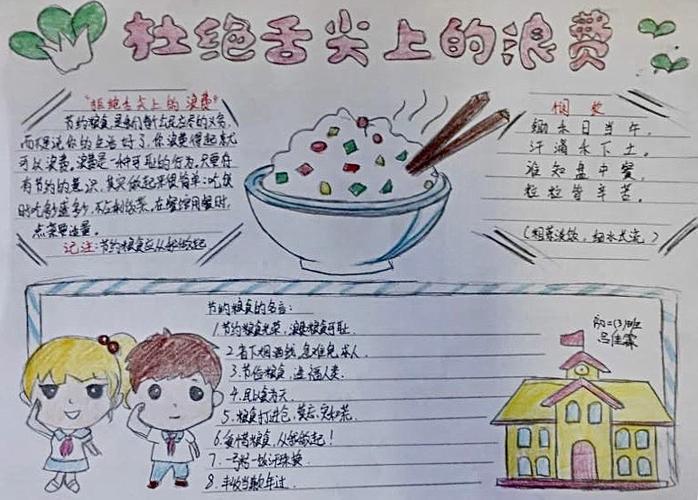 杜绝舌尖上的浪费
"拒绝舌尖上的浪费"
节约粮食,是我们每个公民应尽的义务,
而不是说你的生活好了,你浪费得起就
可以浪费。浪费是一种可耻的行为,只要存
有节约的意识,其实做起来很简单:吃饭
时吃多少盛多少,不剩饭菜,在餐馆用餐时,
点菜要适量。
记住:节约粮食应从我做起
悯农
锄禾日当午,
汗滴禾下土。
谁知盘中餐,
粒粒皆辛苦。
(粗茶淡饭,细水长流)
节约粮食的名言:
1.节约粮食光荣,浪费粮食可耻
2.省下烟酒钱,急难免求人.
3.节俗粮食,造福人类.
4.民以食为天
5.粮食打进仓,莫忘灾和荒.
6.爱惜粮食,从我做起!
7.一粥一饭汗珠换
8.丰收当歉年过.
初二(3)班